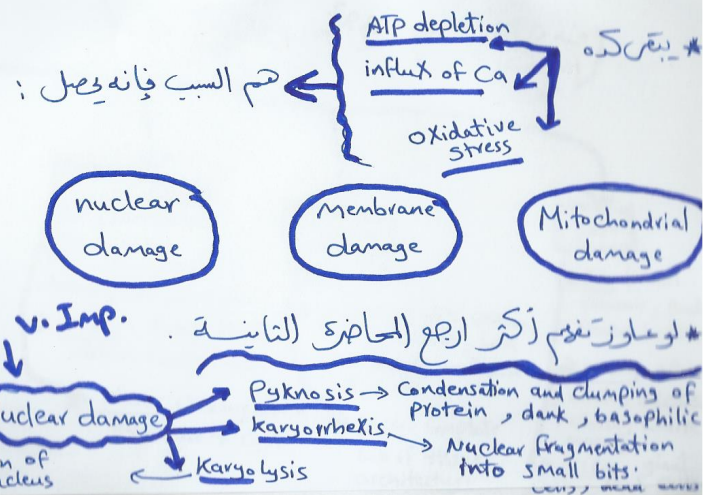 * يبقى كده
ATP depletion
influx of Ca
oxidative
stress
هم السبب فإنه يحصل :
nuclear
damage
Membrane
damage
Mitochondrial
damage
* لو عاوز تفهم أكثر ارجع المحاضرة التانية .
v. Imp.
uclear damage
Pyknosis → Condensation and clumping of
protein , dank , basophilic
Karyorrhexis → Nuclear fragmentation
into small bits.
Karyolysis
n of
cleus